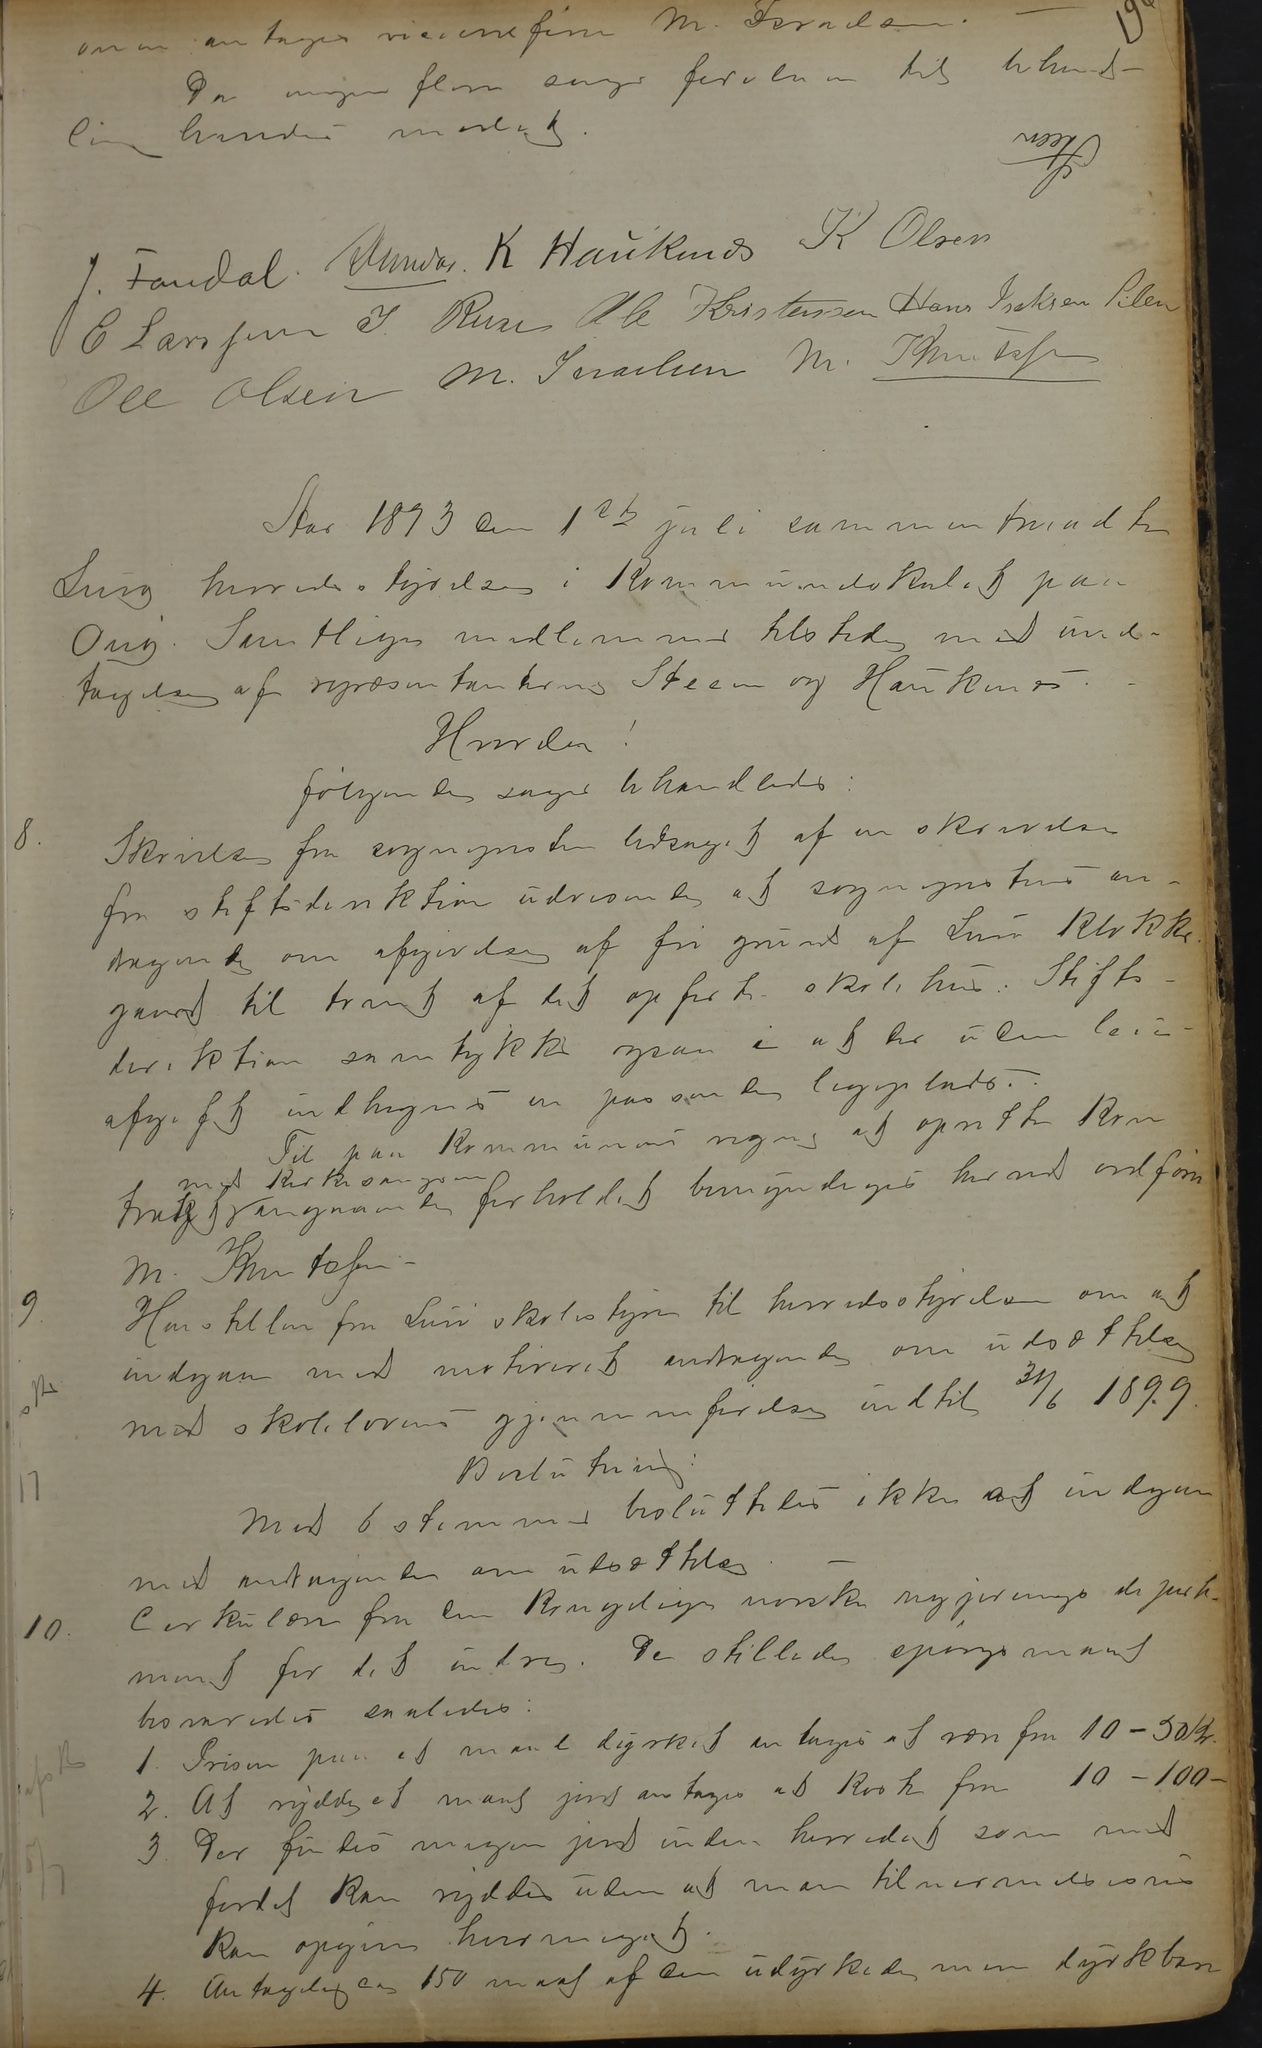 antages viceordfører M. Israelsen.
Da ingen flere sager forelaa til behand-
ling hævedes mødet.
Steen
J. Fondal. K Haukenes K Olsen
E Larssen I. Ole Kristensen Hans Isaksen
Ole Olsen M. Israelsen M. Knutssen
Aar 1893 den 1ste juli sammentraadte
Lurø herredsstyrelse i Kommunelokalet paa
Onø. Samtlige medlemmer tilstede med und-
tagelse af repræsentanterne Steen og Haukenes.
Hvorda!
følgende sager behandledes:
8. Skrivelse fra sognepresten ledsaget af en skrivelse
fra stiftsdirektion udvisende at sogneprestens an-
dragende om afgivelse af fri grund af Lurø Klokker-
gaard til tomt af det opførte skolehus. Stifts-
direktion samtykker ogsaa i at der uden leie-
afgift indhegnes en passende legeplads.
Til paa Kommunens vegne at oprette Kon
med Kirkesangeren
trakt angaaende forholdet bemyndiges herred ordfører
M. Knutssen
9. Henstillen fra Lurø skolestyre til herredsstyrelsen om at
indgaa med motiveret andragende om udsættelse
med skolelovens gjennemførelse indtil 30/6 1899.
Beslutning:
Med 6 stemmer besluttedes ikke at indgaa
med andragende om udsættelse
10. Cirkulære fra den Kongelige norske regjerings departe-
ment for det indre. De stillede spørgsmaal
besvaredes saaledes:
1. Prisen paa et maal dyrket antages at være fra 10 - 50 Kr.
2. At rydde et maal jord antages at koste fra 10 - 100 -
3. Der findes megen jord inden herredet som med
fordel kan ryddes uden at man tilnærmelsesvis
kan opgive hvor meget.
4. Antagelig ca 150 maal af den udyrkede men dyrkbare